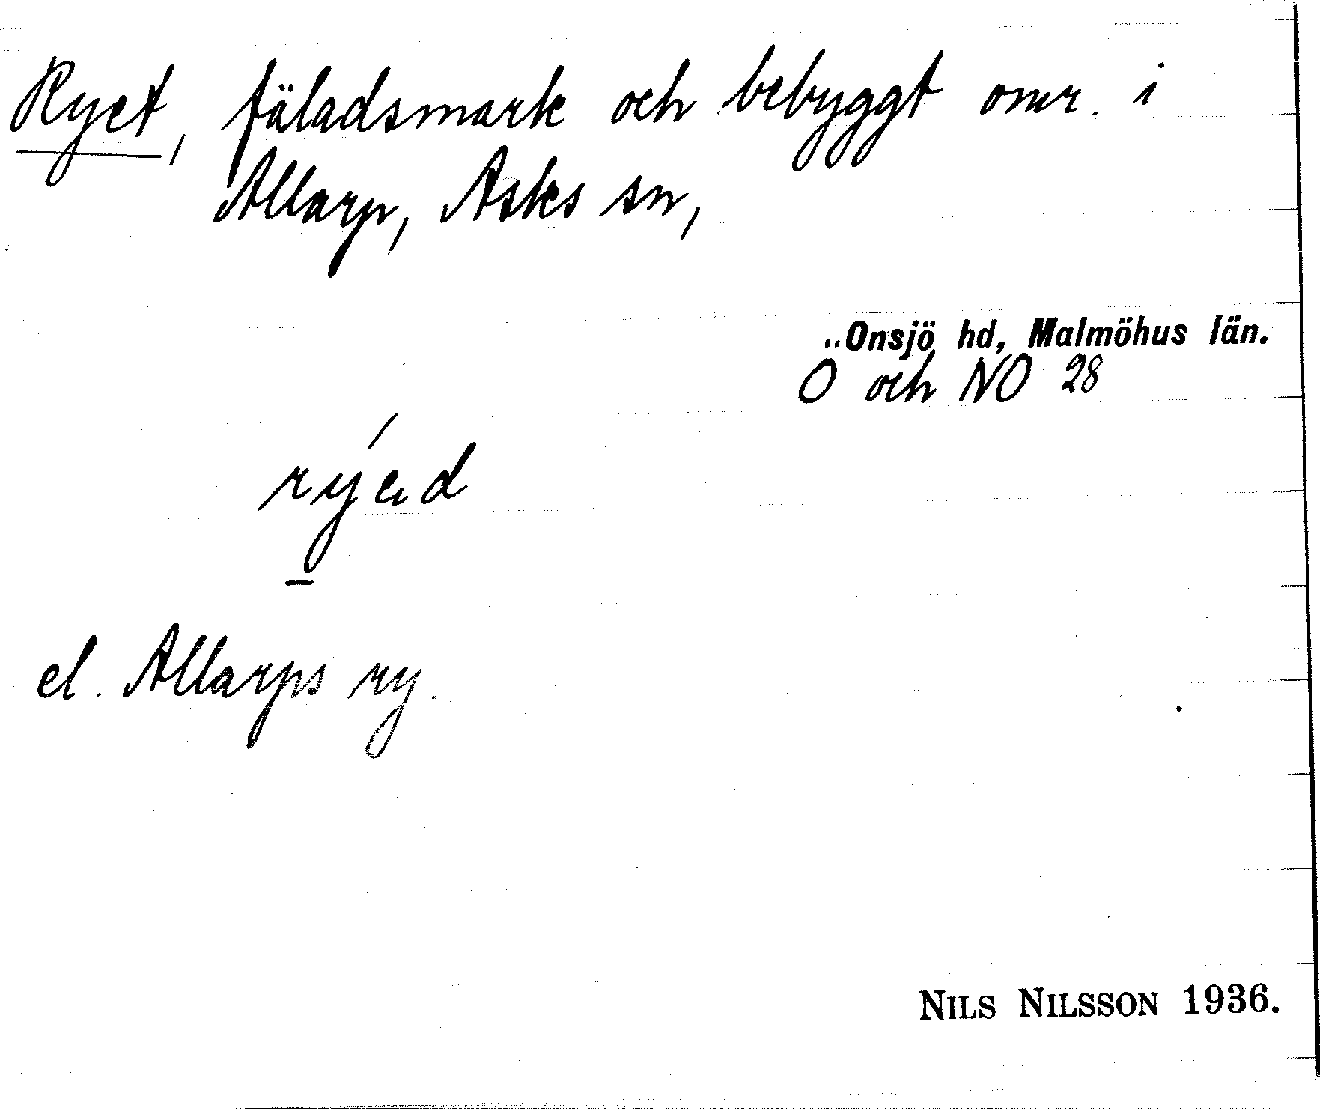 Ryet, fäladsmark och bebyggt omr. i
Allarp, Asks sn,
Onsjö hd, Malmöhus län.
O och NO 28
el. Allarps ry.
NILS NILSSON 1936.